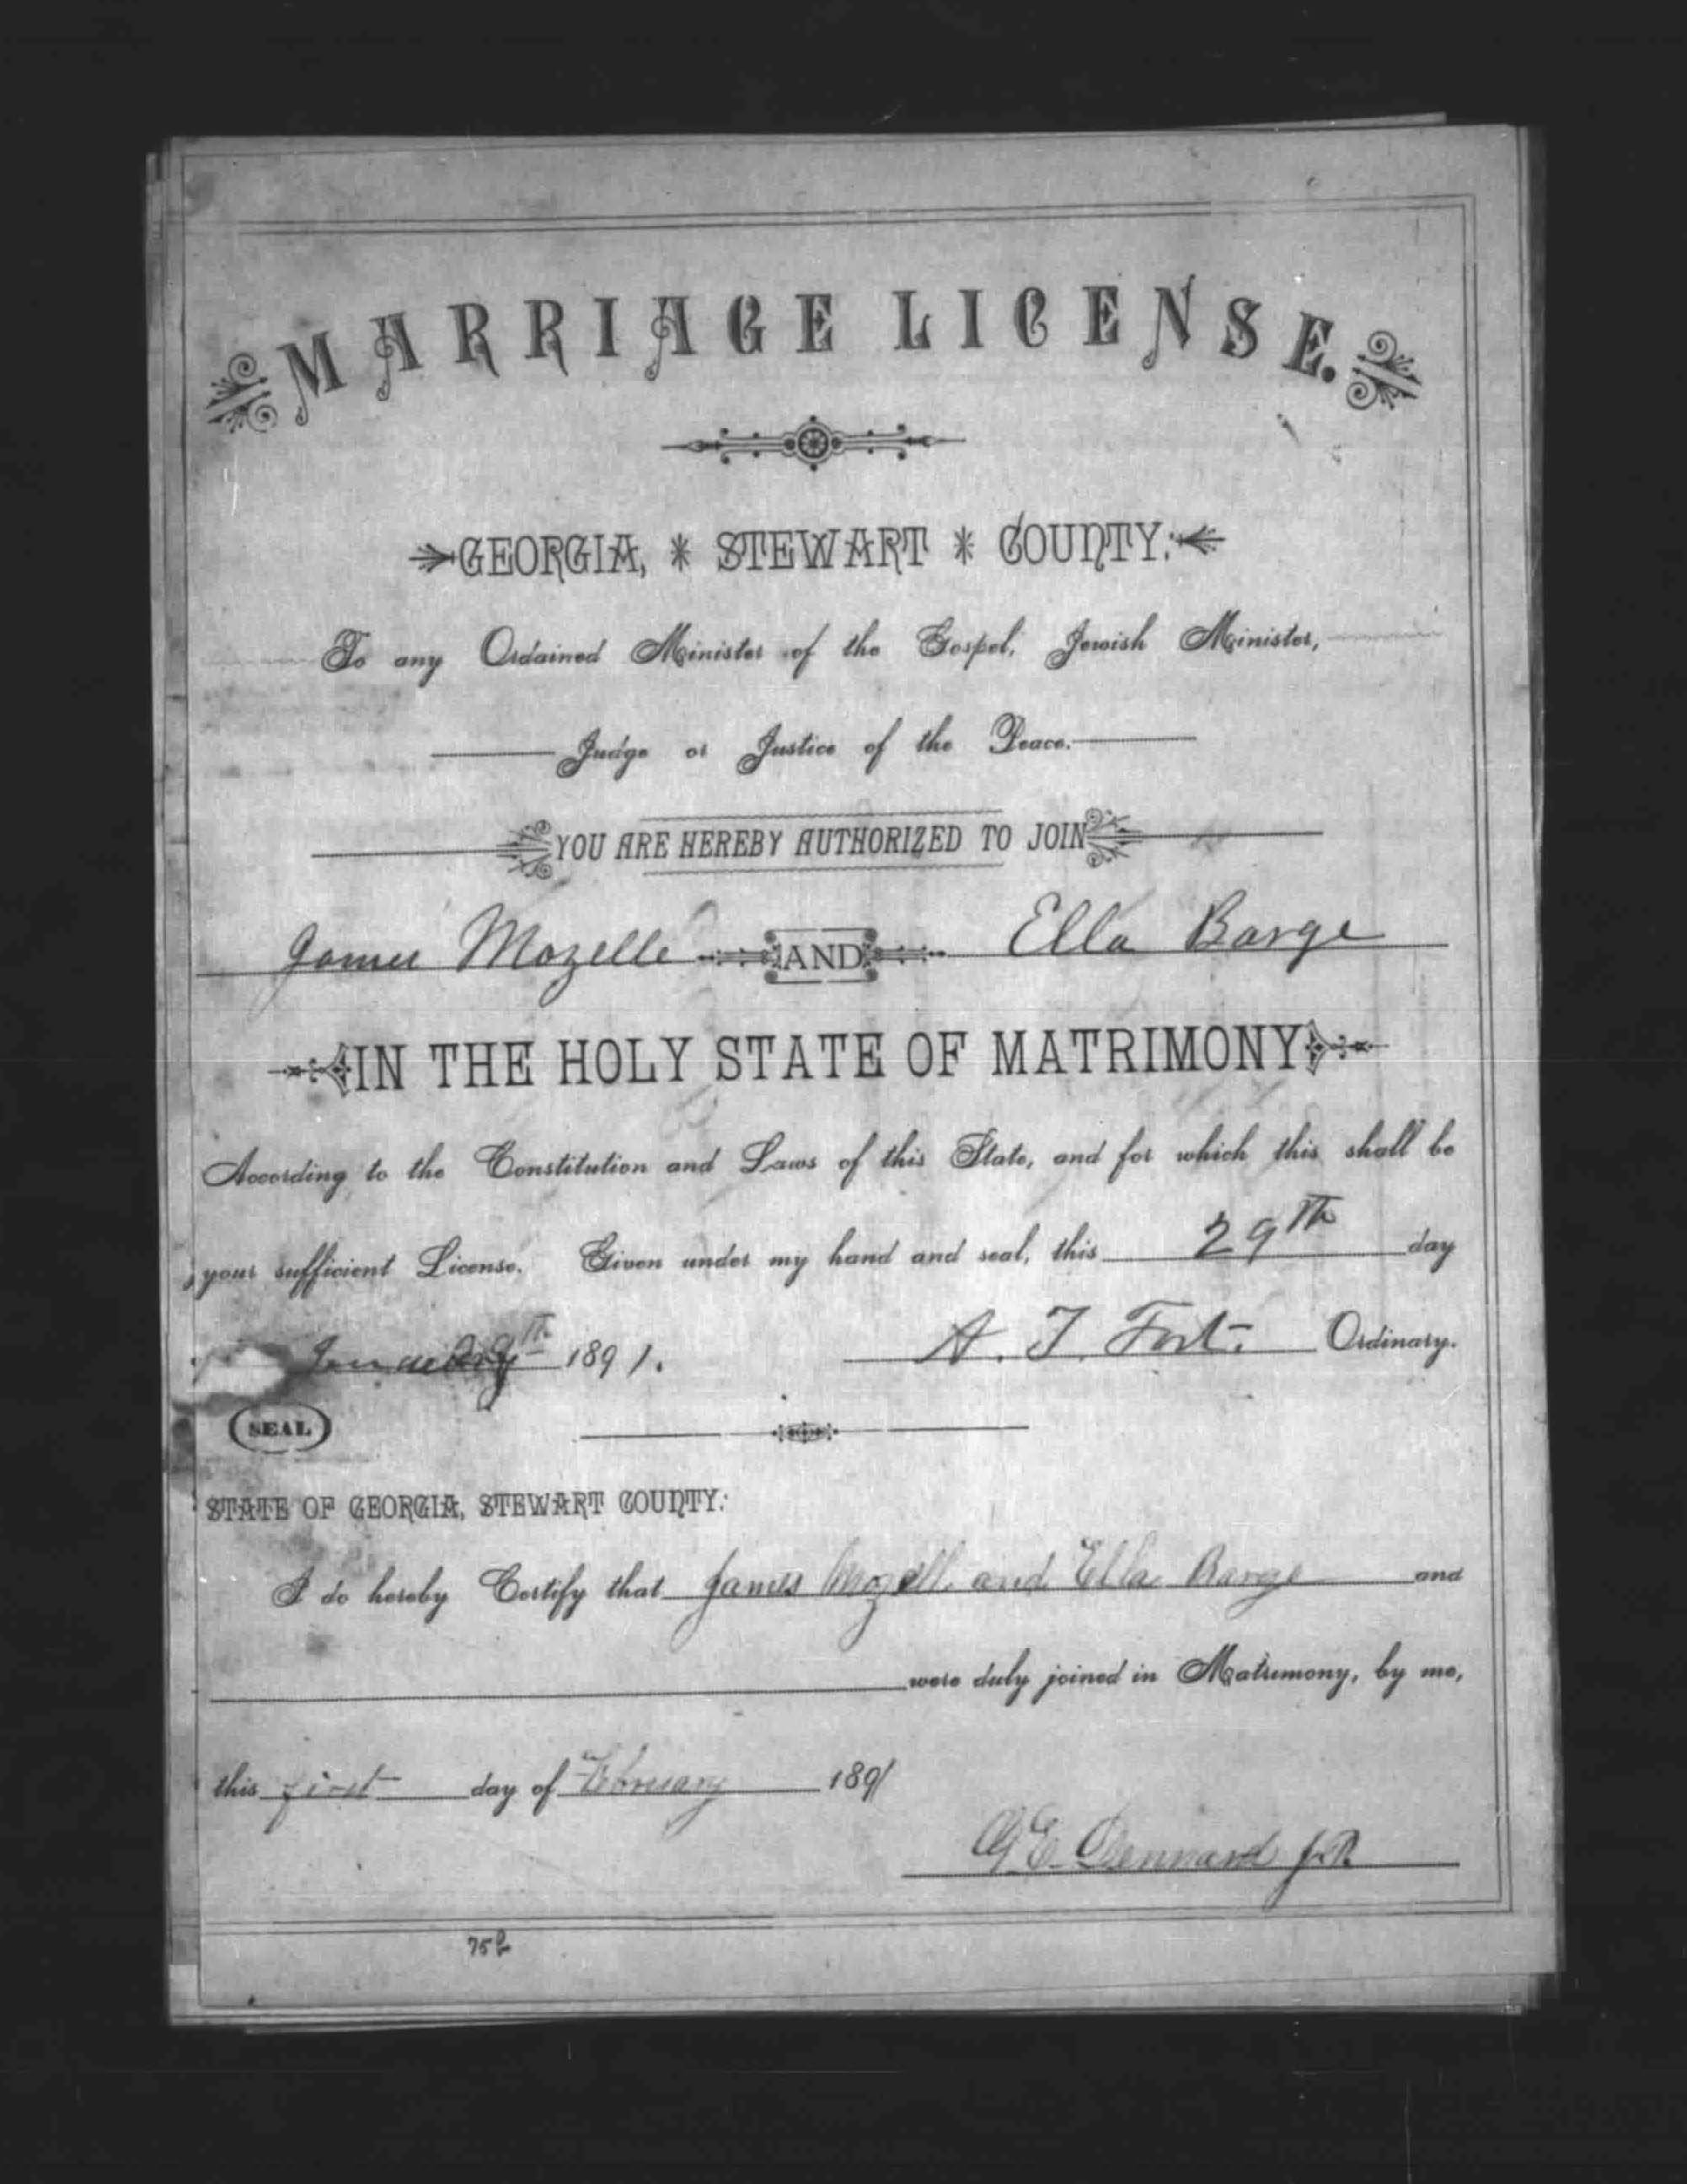 MARRIAGE LICENSE.
GEORGIA, * STEWART * COUNTY:
To any Ordained Minister of the Gospel, Jewish Minister,
Judge or Justice of the Peace.
YOU ARE HEREBY AUTHORIZED TO JOIN
James Mozelle AND Ella Barge
IN THE HOLY STATE OF MATRIMONY
According to the Constitution and Laws of this State, and for which this shall be
your sufficient License. Given under my hand and seal, this 29th day
1891. A. T. Fort. Ordinary.
(SEAL)
STATE OF GEORGIA, STEWART COUNTY:
I do hereby Certify that James Mozell and Ella Barge and
were duly joined in Matrimony, by me,
this first day of February 1891
Dennard J.P.